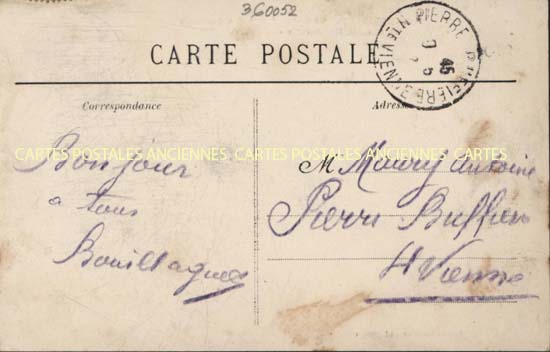 360052
CARTE POSTALE
PIERRE BUFFIÈRE HTE VIENNE
45
Correspondance
Adresse
CARTES POSTALES ANCIENNES CARTES POSTALES ANCIENNES CARTES
Bonjour
à tous
M Maury Antoine
Pierre Buffière
Hte Vienne